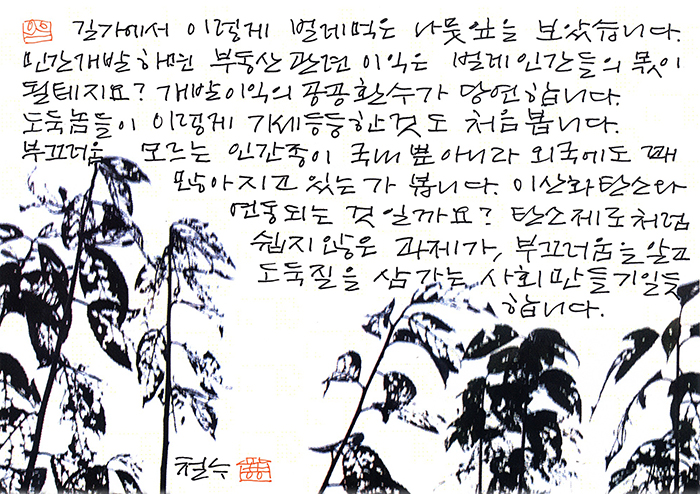 길가에서 이렇게 벌레먹은 나뭇잎을 보았습니다.
민간개발 하면 부동산 관련 이익은 벌레인간들의 몫이
될테지요? 개발이익의 공공환수가 당연합니다.
도둑놈들이 이렇게 기세등등한 것도 처음 봅니다.
부끄러움 모르는 인간종이 국내 뿐 아니라 외국에도 꽤
많아지고 있는가 봅니다. 이산화탄소와
연동되는 것일까요? 탄소제로처럼
쉽지않은 과제가, 부끄러움을 알고
도둑질을 삼가는 사회만들기일듯
합니다.
철수